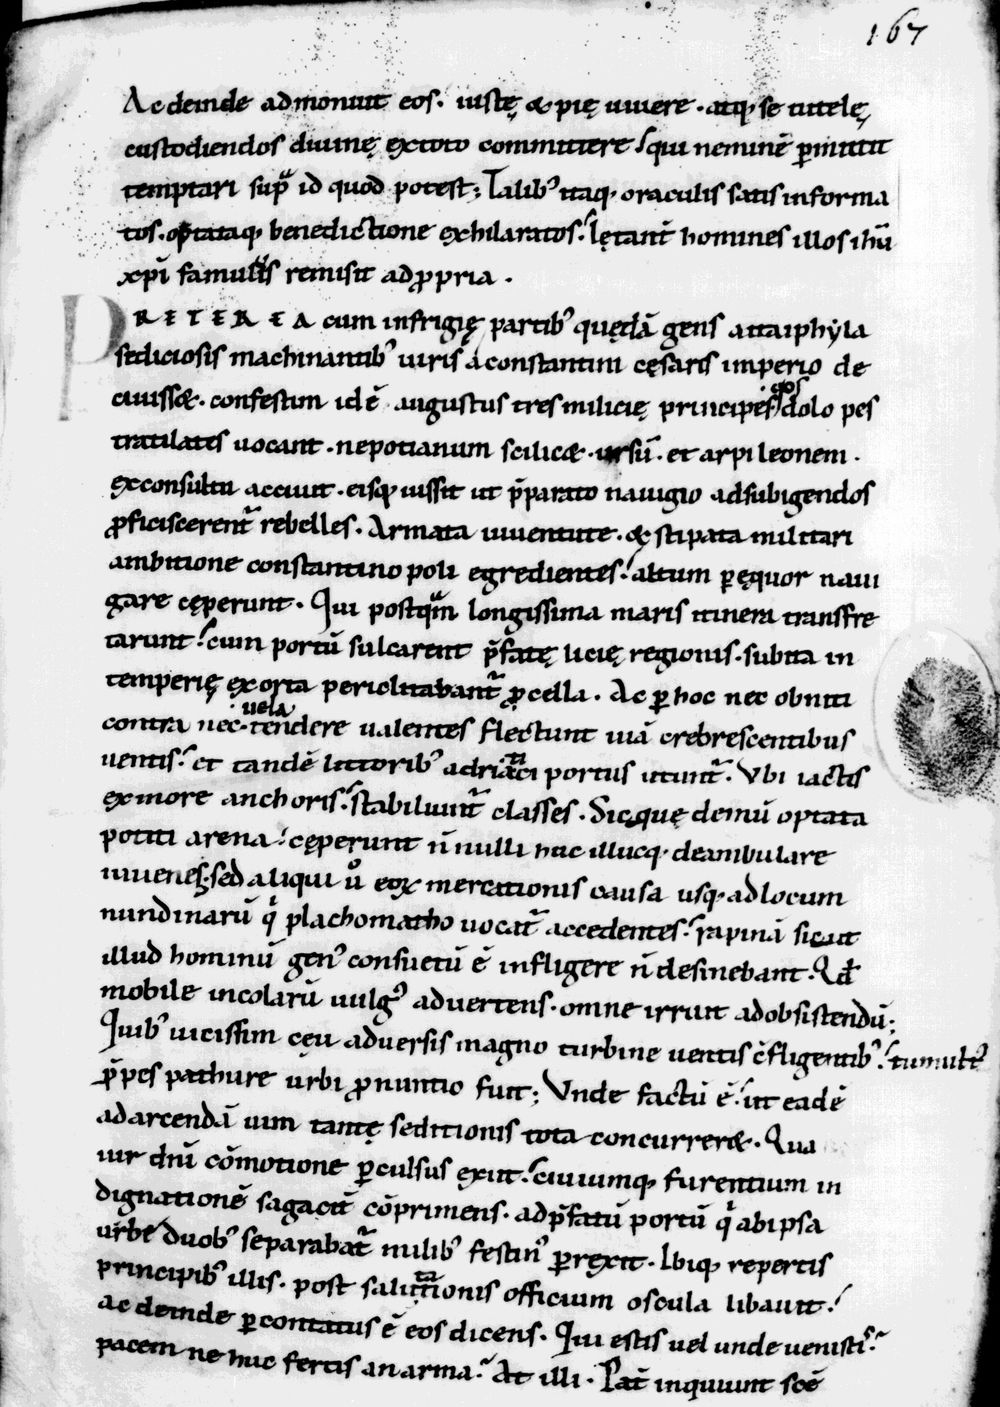 167
Ac deinde admonuit eos. iustę & pię uiuere. atq; se tutelę
custodiendos diuinę extoto committere. qui neminē p̄mittit
temptari supͣ id quod potest; Talib' itaq; oraculis satis informa
tos. optataq; benedictione exhilaratos. lętant̄ homines illos ihū
xp̄i famulus remisit ad ꝓpria.
PRETEREA cum infrigię partib' quędā gens attaiphyla
sediciosis machinantib' uiris a constantini cęsaris imperio de
ciuiss&. confestim idē augustus tres milicię principes dolo pes
tratilates uocant. nepotianum scilic&. ursū. et arpileonem.
exconsultu acciuit. eisq; iussit ut p̄parato nauigio adsubigendos
ꝓficiscerent̄ rebelles. Armata iuuentute. & stipata militari
ambitione constantinopoli egredientes. altum p̱ęquor naui
gare cęperunt. Qui postqͣm longissima maris itinera transfre
tarunt. cum portū sulcarent p̄fatę licię regionis. subita in
temperię exorta periclitabant̄ ꝓcella. Ac ꝑ hoc nec obniti
contra nec uela tendere ualentes flectunt uiā crebrescentibus
uentis. et tandē littorib' adriatici portus utunt̄. Vbi iactis
exmore anchoris. stabiliunt̄ classes. Sicquę demū optata
potiti arena. cęperunt n̄nulli huc illucq; deambulare
iuuenes. sed aliqui u͛o eoꝝ mercationis causa usq; adlocum
nundinarū qͥ plachomatho uocat̄ accedentes. rapinā sicut
illud hominū gen' consuetū ē infligere n̄ desinebant. Qđ
mobile incolarū uulg' aduertens. omne irruit adobsistendū;
Quib' uicissim cęu aduersis magno turbine uentis c̄fligentib'. tumult'
p̄pes pathure urbi ꝓnuntio fuit; Vnde factū ē. ut eadē
adarcendā uim tantę seditionis tota concurrer&. Qua
uir dn̄i cōmotione ꝑculsus exiit. ciuiumq; furentium in
dignationē sagacit̄ cōprimens. ad p̄fatū portū qͥ abipsa
urbe duob' separabat̄ milib' festin' ꝑrexit. Ibiq; repertis
principib' illis. post salutationis officium oscula libauit.
ac deinde ꝑcontatus ē eos dicens. Qui estis uel unde uenistis.
pacem ne huc fertis an arma. At illi. Pat̄ inquiunt scē